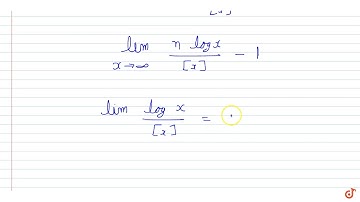 lim x→∞ n log x / [x] − 1
lim log x / [x] =